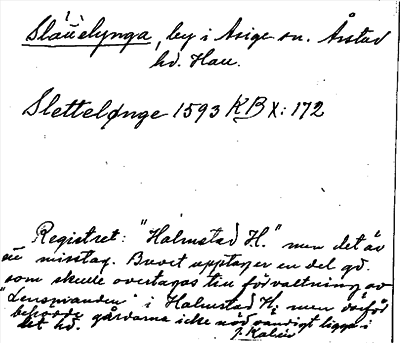 Slättelynga, by i Asige sn. Årstad
hd. Hall.
Slettelønge 1593 KB X: 172
Registret: "Halmstad H." men det är
ett misstag. Brevet upptager en del gd.
som skulle overtagas till förvaltning av
"Lensmanden" i Halmstad H, men därför
behövde gårdarna icke nödvändigt ligga i
det hd.